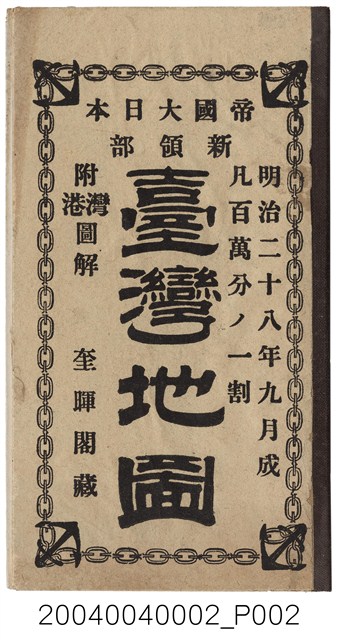 帝國大日本
新領部
明治二十八年九月成
凡百萬分ノ一割
臺灣地圖
附灣港圖解
奎暉閣藏
20040040002_P002